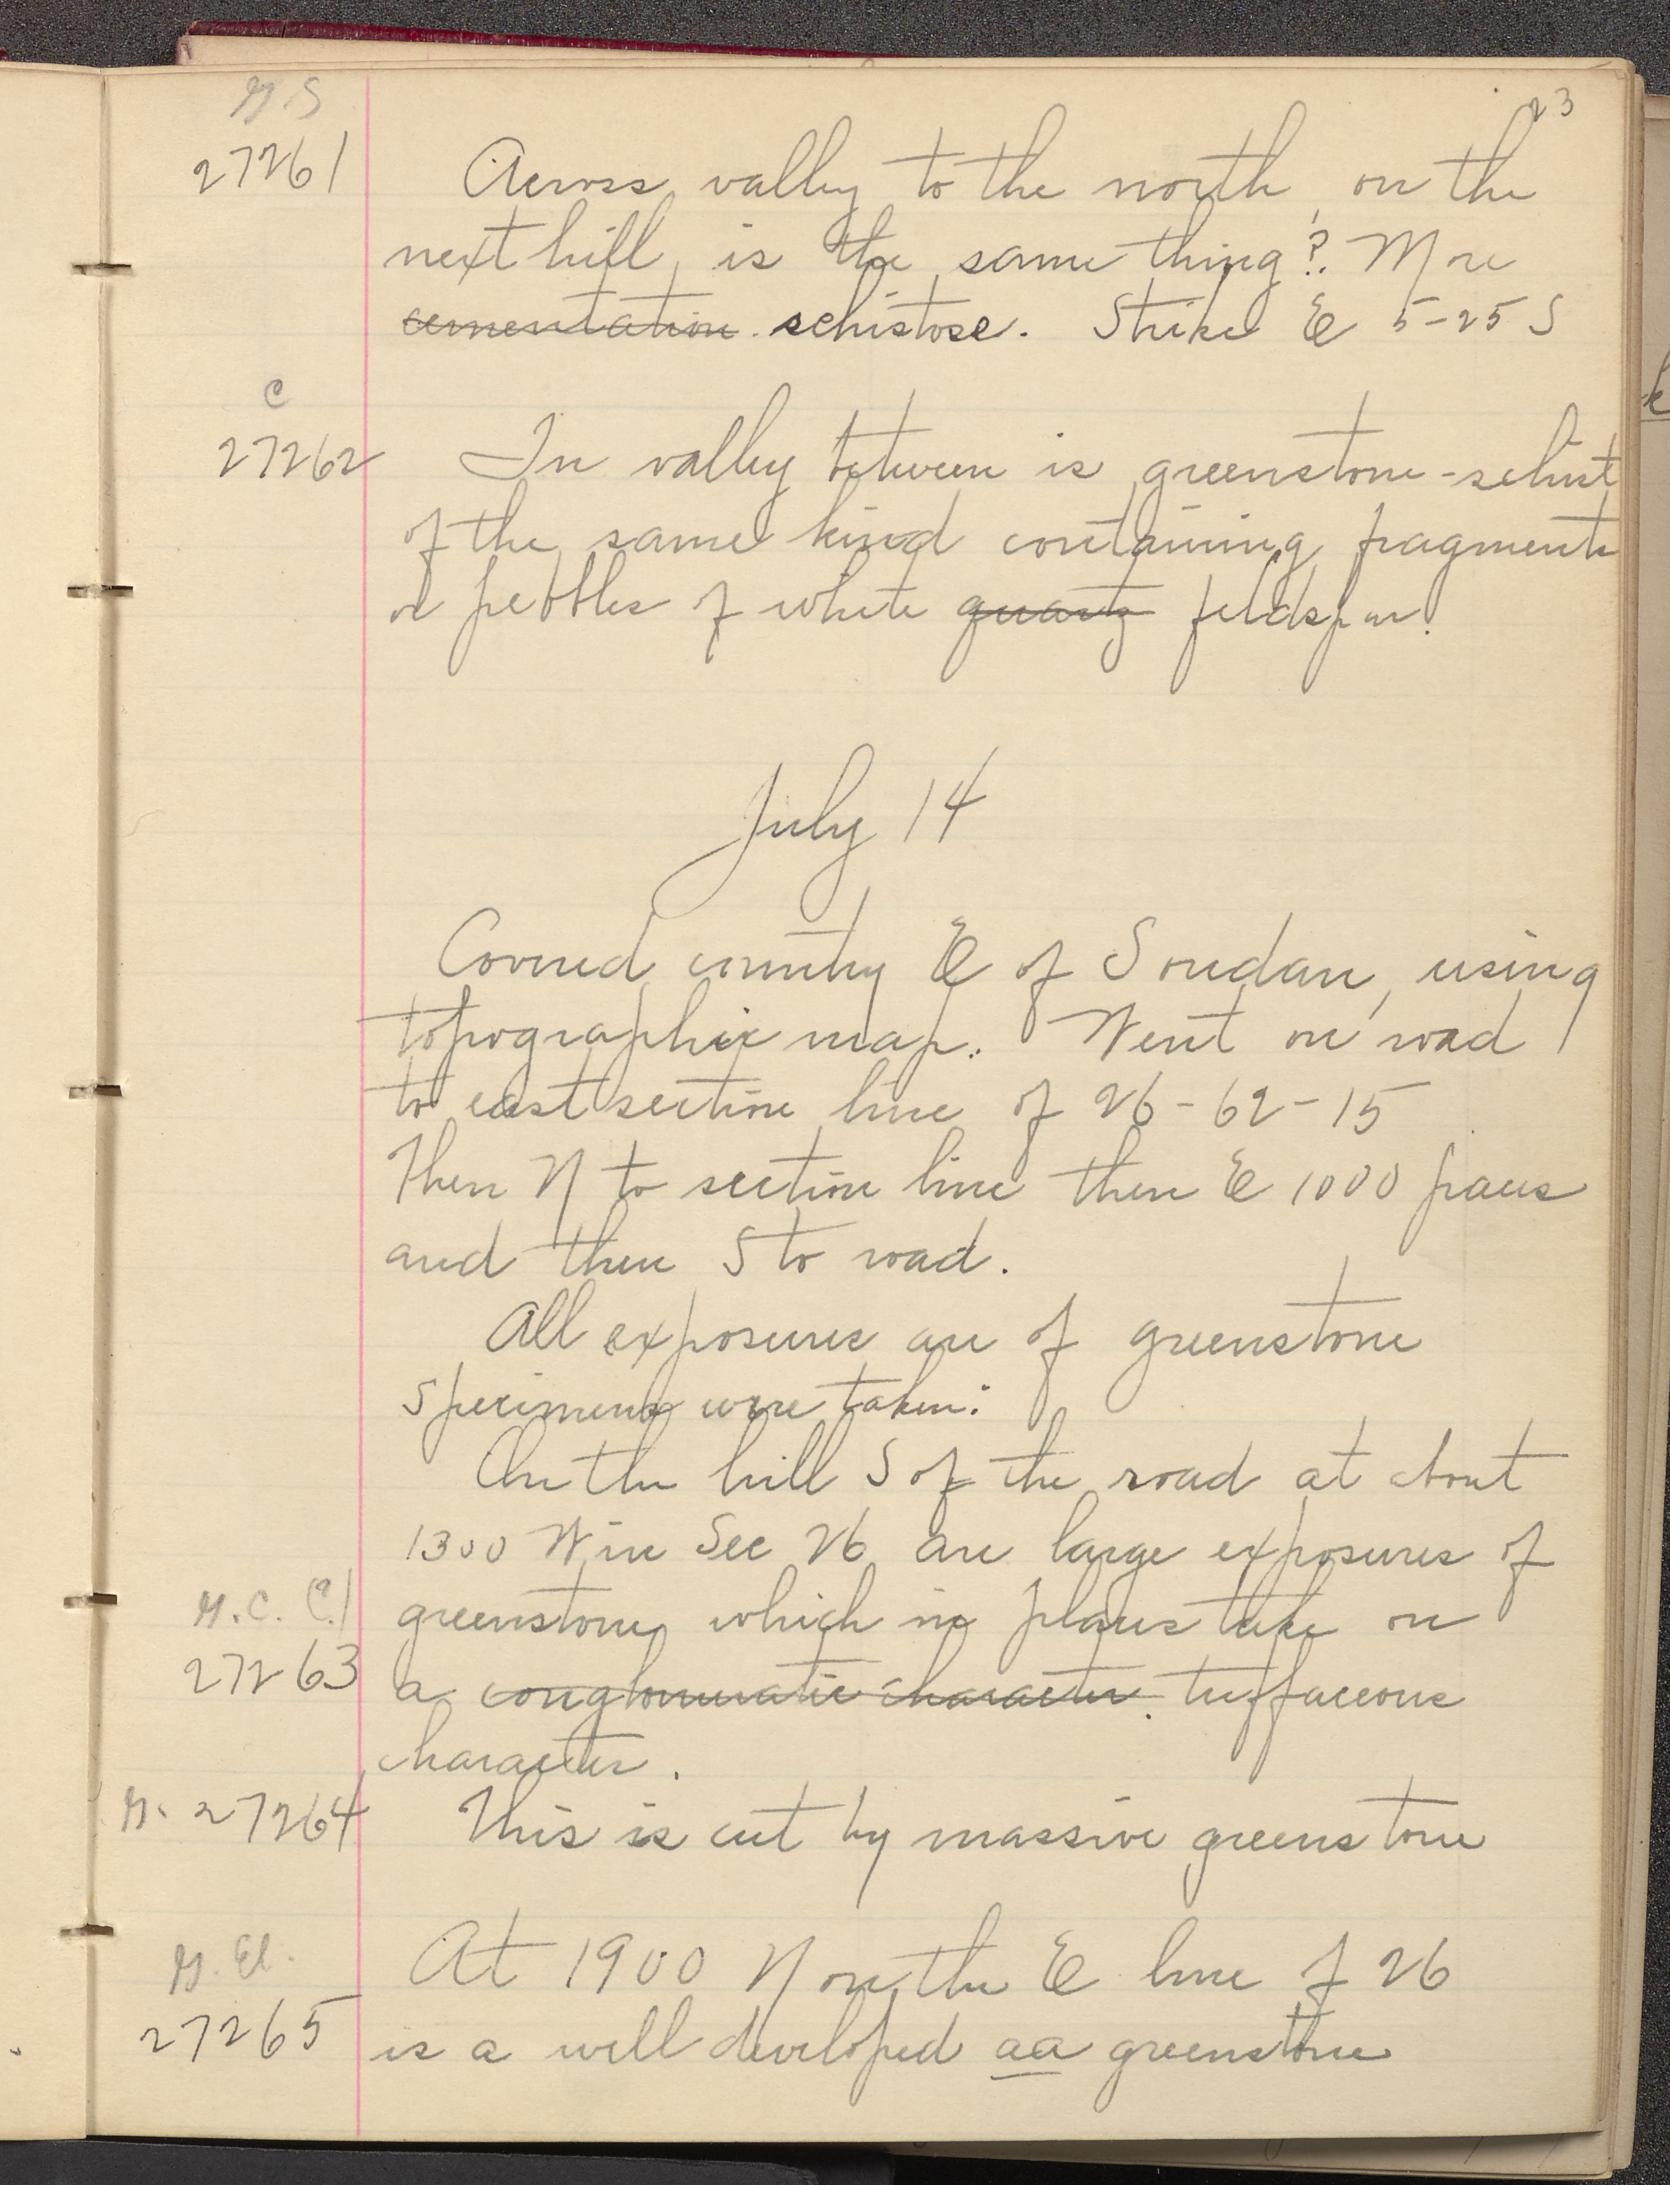 23
G.S
27261 Across valley to the north, on the
next hill, is the same thing?. More
cementation schistose. Strike E 5-25 S
C
27262 In valley between is greenstone-schist
of the same kind containing fragments
or pebbles of white quartz feldspar.
July 14
Covered country E of Soudan, using
topographic map. Went on road
to east section line of 26-62-15
Then N to section line then E 1000 paces
and then S to road.
All exposures are of greenstone
Specimens were taken:
On the hill S of the road at about
1300 W in Sec 26 are large exposures of
G.C.
greenstone, which in places take on
27263 a conglomeratic character. tuffaceous
character.
G. 27264 This is cut by massive greenstone
G. El.
At 1900 N on the E line of 26
27265 is a well developed aa greenstone